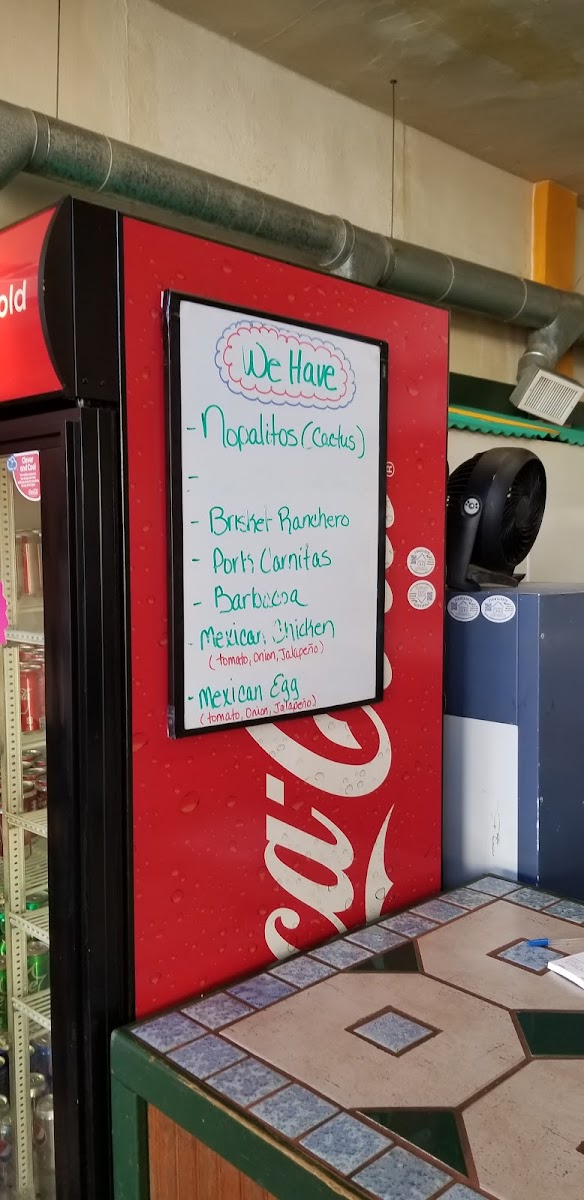 We Have
- Nopalitos (Cactus)
-
- Brisket Ranchero
- Pork Carnitas
- Barbacoa
- Mexican Chicken
(tomato, Onion, Jalapeño)
- Mexican Egg
(tomato, Onion, Jalapeño)
old
Clever
and Cool
ca-C
®